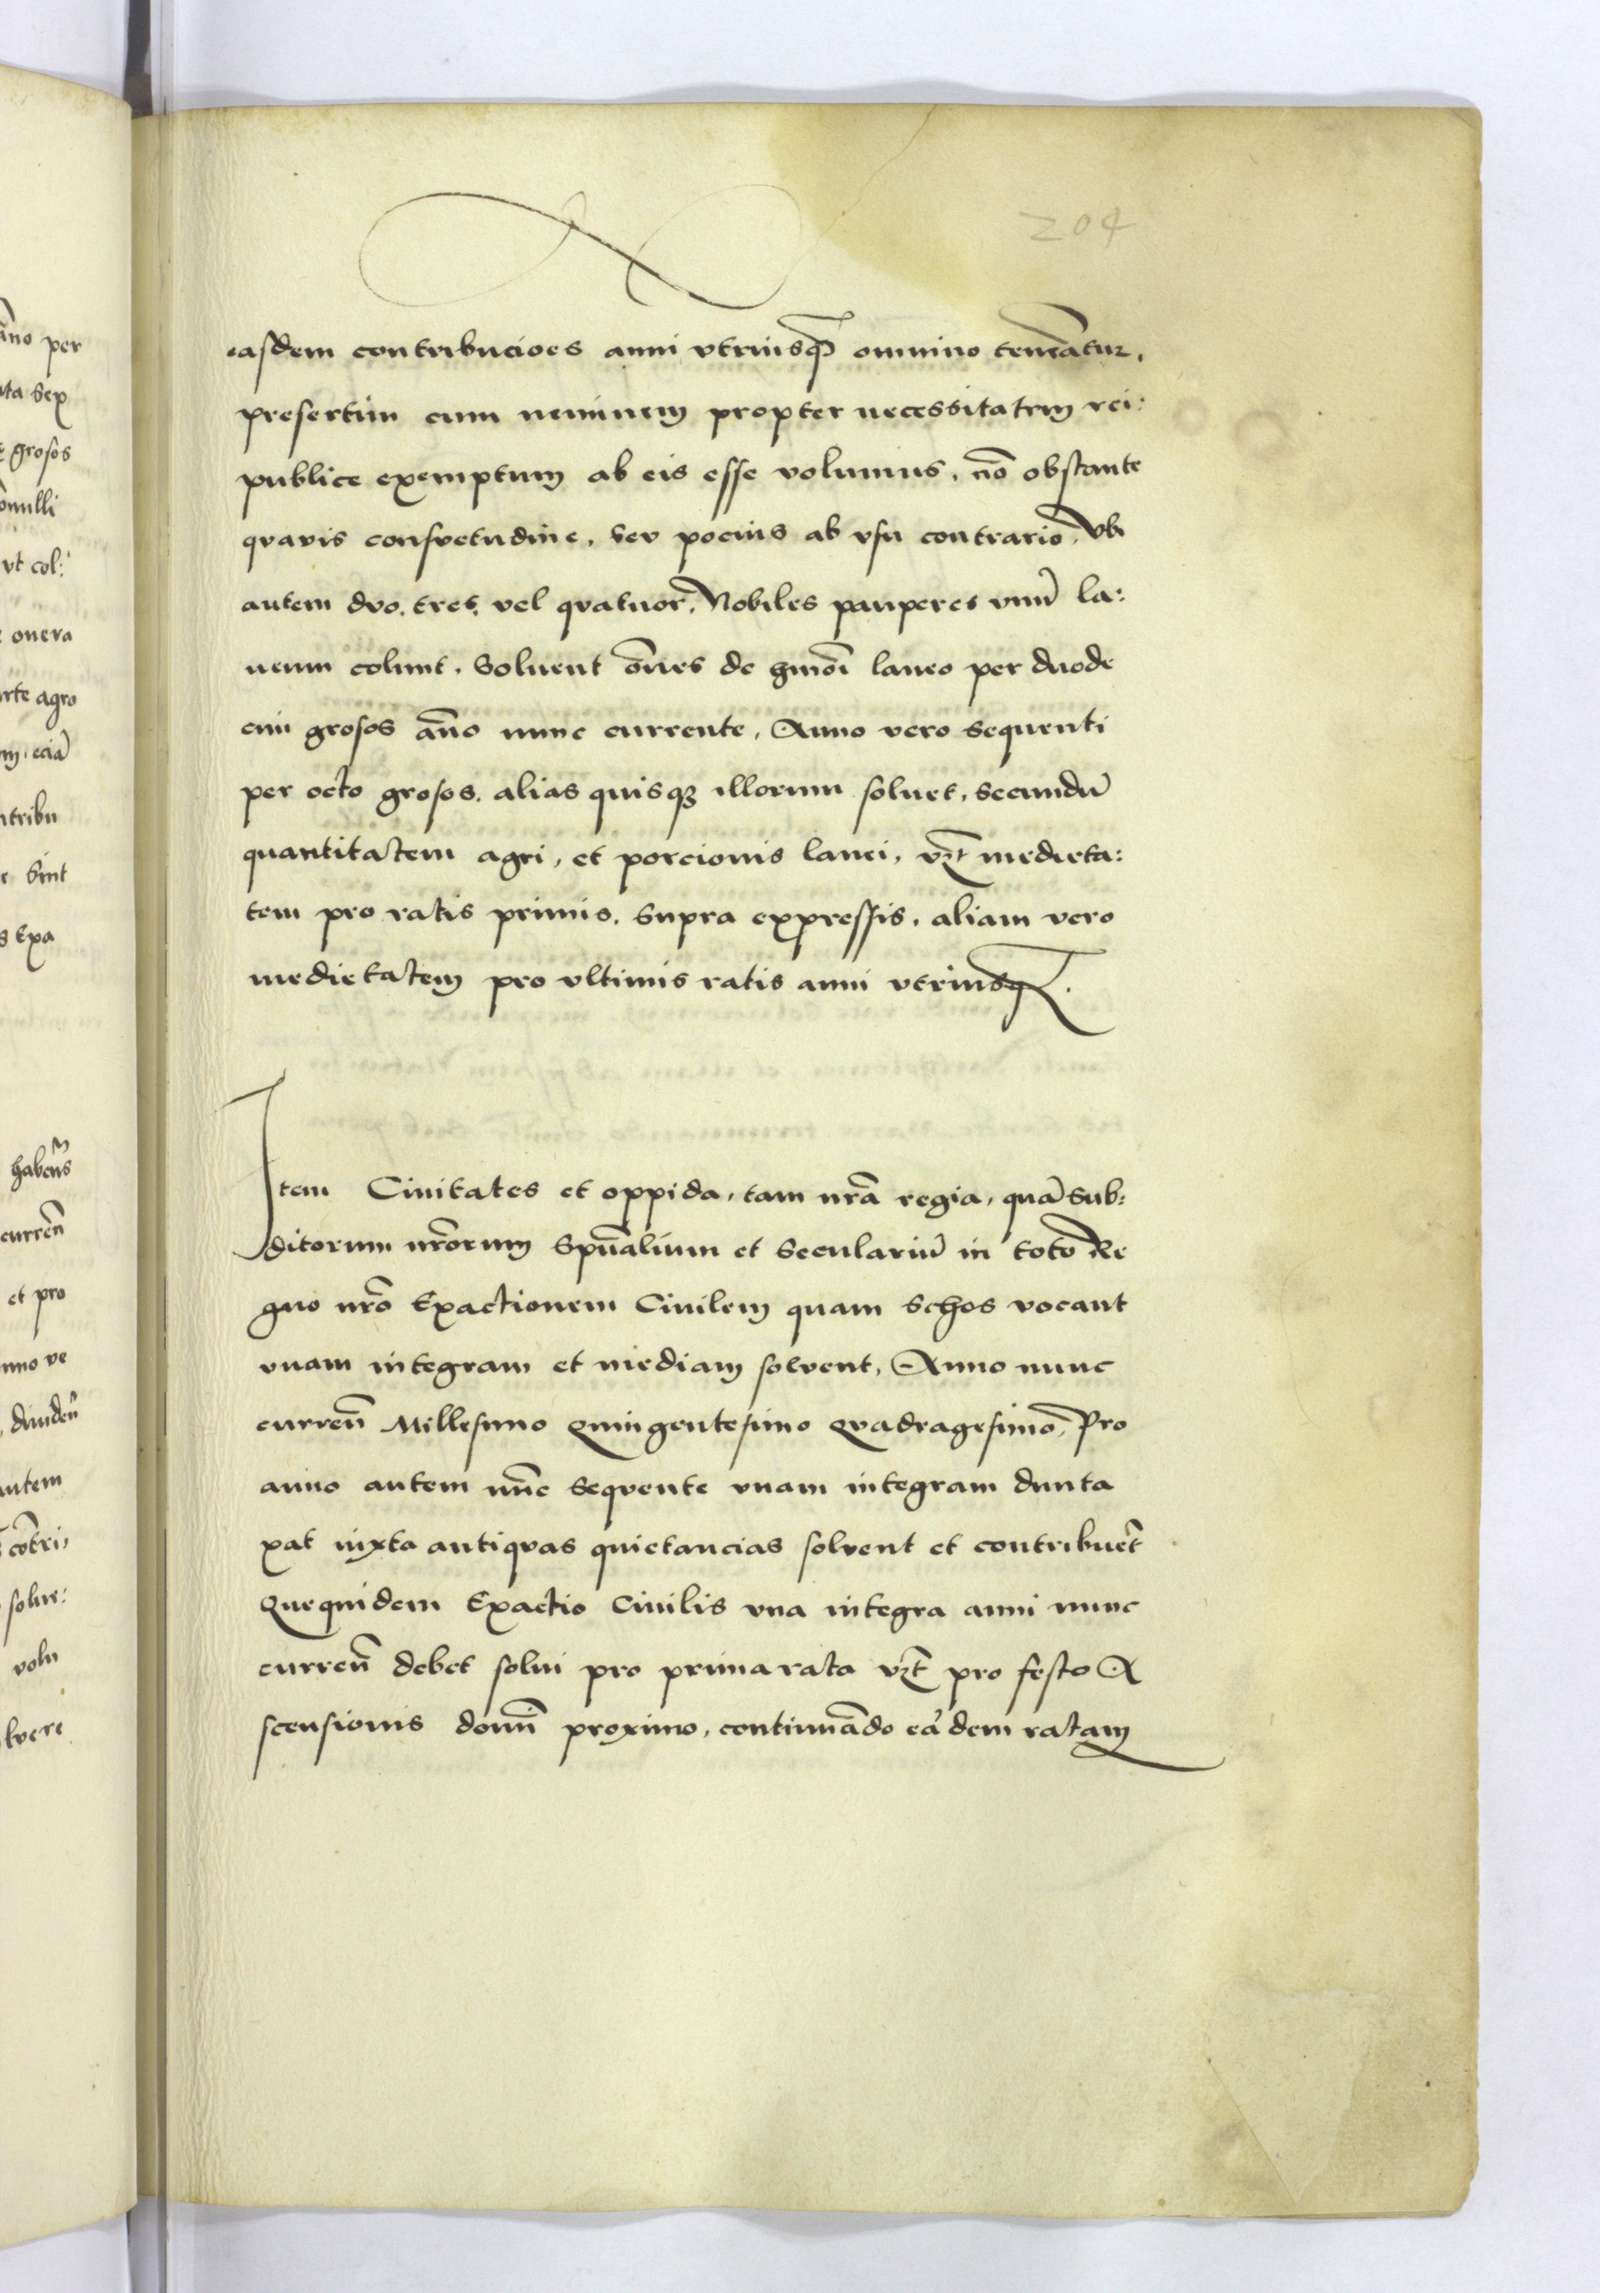 204
easdem contribucioēs anni vtriusq̃ omnino teneãtur,
presertim cum neminem propter necessitatem rei:
publice exemptum ab eis esse volumus, nõ obstante
qvavis consvetudine, sev pocius ab vsu contrario, Vbi
autem dvo, tres, vel qvatuor, Nobiles pauperes vnũ la:
neum colunt, Soluent õnes de h̃mõi laneo per duode
cim grosos ãno nunc currente, Anno vero sequenti
per octo grosos, alias quisqz illorum soluet, secundũ
quantitatem agri, et porcionis lanei, vz̃t medieta:
tem pro ratis primis, supra expressis, aliam vero
medietatem pro vltimis ratis anni vtriusq̃.
Item Ciuitates et oppida, tam nr̃a regia, quã Sub:
ditorum nr̃orum Spũalium et Seculariũ in toto Re
gno nr̃o Exactionem Ciuilem quam Schos vocant
vnam integram et mediam solvent, Anno nunc
curreñ Millesimo Quingentesimo Qvadragesimo, Pro
anno autem nũc seqvente vnam integram dunta
xat iuxta antiqvas quietancias solvent et contribuẽt
Quequidem Exactio Ciuilis vna integra anni nunc
curreñ debet solui pro prima rata vz̃t pro festo A
scensionis domĩ proximo, continuãdo eãdem ratam
ãno per
ta sex
grosos
õnulli
vt col:
onera
rte agro
m, eciã
ntribu
Sint
s Exa
habeñs
curreñ
et pro
nno ve
diuideñ
autem
cõtri,
solue:
volu
lvere